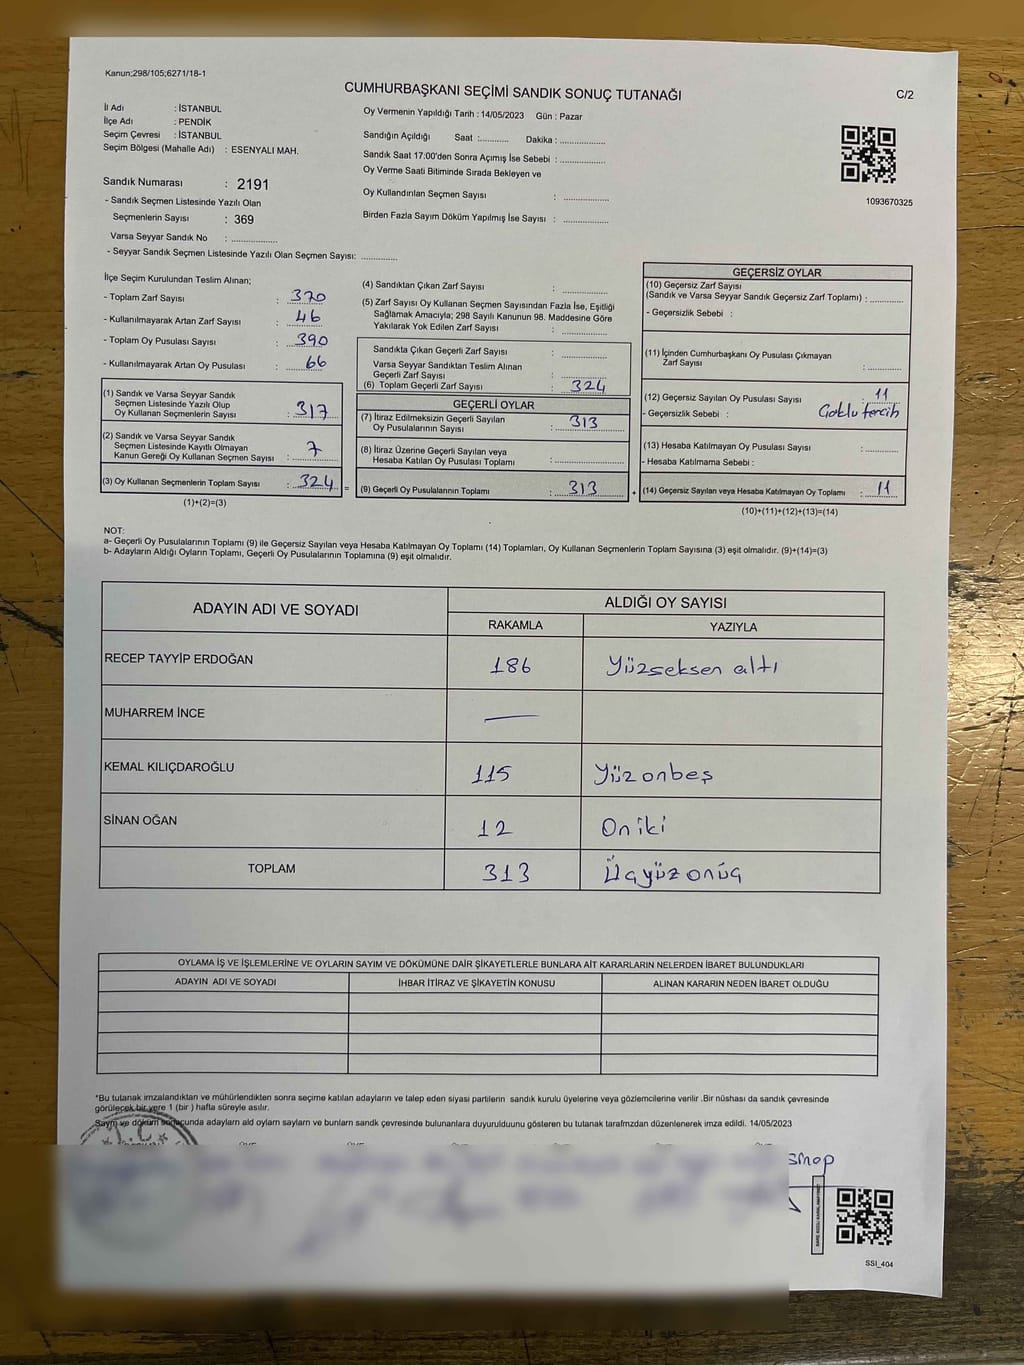 Kanun;298/105;6271/18-1
CUMHURBAŞKANI SEÇİMİ SANDIK SONUÇ TUTANAĞI
C/2
İl Adı : İSTANBUL
İlçe Adı : PENDİK
Seçim Çevresi : İSTANBUL
Seçim Bölgesi (Mahalle Adı) : ESENYALI MAH.
Sandık Numarası : 2191
- Sandık Seçmen Listesinde Yazılı Olan
Seçmenlerin Sayısı : 369
Varsa Seyyar Sandık No : ................
- Seyyar Sandık Seçmen Listesinde Yazılı Olan Seçmen Sayısı: ............
Oy Vermenin Yapıldığı Tarih : 14/05/2023 Gün : Pazar
Sandığın Açıldığı Saat :.......... Dakika : ................
Sandık Saat 17:00'den Sonra Açımış İse Sebebi : ................
Oy Verme Saati Bitiminde Sırada Bekleyen ve
Oy Kullandırılan Seçmen Sayısı : ................
Birden Fazla Sayım Döküm Yapılmış İse Sayısı : ................
1093670325
İlçe Seçim Kurulundan Teslim Alınan;
- Toplam Zarf Sayısı : 370
- Kullanılmayarak Artan Zarf Sayısı : 46
- Toplam Oy Pusulası Sayısı : 390
- Kullanılmayarak Artan Oy Pusulası : 66
(1) Sandık ve Varsa Seyyar Sandık
Seçmen Listesinde Yazılı Olup
Oy Kullanan Seçmenlerin Sayısı : 317
(2) Sandık ve Varsa Seyyar Sandık
Seçmen Listesinde Kayıtlı Olmayan
Kanun Gereği Oy Kullanan Seçmen Sayısı : 7
(3) Oy Kullanan Seçmenlerin Toplam Sayısı : 324 =
(1)+(2)=(3)
(4) Sandıktan Çıkan Zarf Sayısı : ................
(5) Zarf Sayısı Oy Kullanan Seçmen Sayısından Fazla İse, Eşitliği
Sağlamak Amacıyla; 298 Sayılı Kanunun 98. Maddesine Göre
Yakılarak Yok Edilen Zarf Sayısı : ................
Sandıkta Çıkan Geçerli Zarf Sayısı : ................
Varsa Seyyar Sandıktan Teslim Alınan
Geçerli Zarf Sayısı : ................
(6) Toplam Geçerli Zarf Sayısı : 324
GEÇERLİ OYLAR
(7) İtiraz Edilmeksizin Geçerli Sayılan
Oy Pusulalarının Sayısı : 313
(8) İtiraz Üzerine Geçerli Sayılan veya
Hesaba Katılan Oy Pusulası Toplamı : ................
(9) Geçerli Oy Pusulalarının Toplamı : 313 +
GEÇERSİZ OYLAR
(10) Geçersiz Zarf Sayısı
(Sandık ve Varsa Seyyar Sandık Geçersiz Zarf Toplamı) : ............
- Geçersizlik Sebebi :
(11) İçinden Cumhurbaşkanı Oy Pusulası Çıkmayan
Zarf Sayısı : ............
(12) Geçersiz Sayılan Oy Pusulası Sayısı : 11
- Geçersizlik Sebebi : Çoklu tercih
(13) Hesaba Katılmayan Oy Pusulası Sayısı : ............
- Hesaba Katılmama Sebebi :
(14) Geçersiz Sayılan veya Hesaba Katılmayan Oy Toplamı : 11
(10)+(11)+(12)+(13)=(14)
NOT:
a- Geçerli Oy Pusulalarının Toplamı (9) ile Geçersiz Sayılan veya Hesaba Katılmayan Oy Toplamı (14) Toplamları, Oy Kullanan Seçmenlerin Toplam Sayısına (3) eşit olmalıdır. (9)+(14)=(3)
b- Adayların Aldığı Oyların Toplamı, Geçerli Oy Pusulalarının Toplamına (9) eşit olmalıdır.
ADAYIN ADI VE SOYADI ALDIĞI OY SAYISI
RAKAMLA YAZIYLA
RECEP TAYYİP ERDOĞAN 186 Yüzseksen altı
MUHARREM İNCE —
KEMAL KILIÇDAROĞLU 115 Yüzonbeş
SİNAN OĞAN 12 On iki
TOPLAM 313 Üçyüz onüç
OYLAMA İŞ VE İŞLEMLERİNE VE OYLARIN SAYIM VE DÖKÜMÜNE DAİR ŞİKAYETLERLE BUNLARA AİT KARARLARIN NELERDEN İBARET BULUNDUKLARI
ADAYIN ADI VE SOYADI İHBAR İTİRAZ VE ŞİKAYETİN KONUSU ALINAN KARARIN NEDEN İBARET OLDUĞU
*Bu tutanak imzalandıktan ve mühürlendikten sonra seçime katılan adayların ve talep eden siyasi partilerin sandık kurulu üyelerine veya gözlemcilerine verilir .Bir nüshası da sandık çevresinde
görülecek bir yere 1 (bir ) hafta süreyle asılır.
Sayım ve döküm sonucunda adayların ald oyların sayları ve bunların sandk çevresinde bulunanlara duyurulduunu gösteren bu tutanak tarafmzdan düzenlenerek imza edildi. 14/05/2023
T.C.
SSI_404